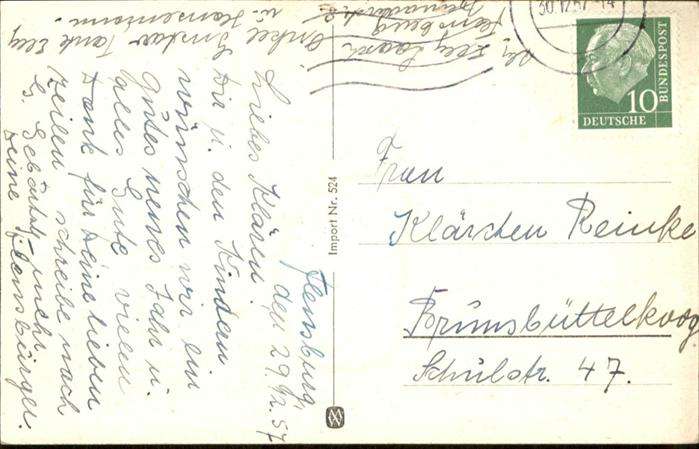 Flensburg,
den 29.12.57
Liebes Klären!
Dir u. den Kindern
wünschen wir ein
gutes neues Jahr u.
alles Gute vielen
Dank für deine lieben
Zeilen schreibe noch
z. Gebürtst. mehr
deine Flensburger.
Onkel Tante Elly
u. Hansemann.
Elly
Flensburg
30.12.57
10
DEUTSCHE
BUNDESPOST
Import Nr. 524
Frau
Klärchen Reinke
Brunsbüttelkoog
Schulstr. 47.